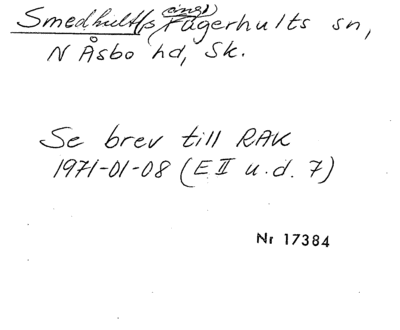 Smedhult (s Fagerhults sn,
N Åsbo hd, Sk.
Se brev till RAK
1971-01-08 (E II u.d. 7)
Nr 17384